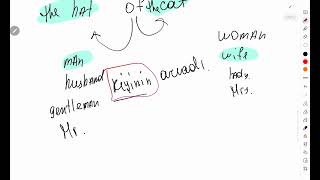 the hat of the cat
woman
man wife
husband kişinin arvadı. lady
gentleman Mrs.
Mr.